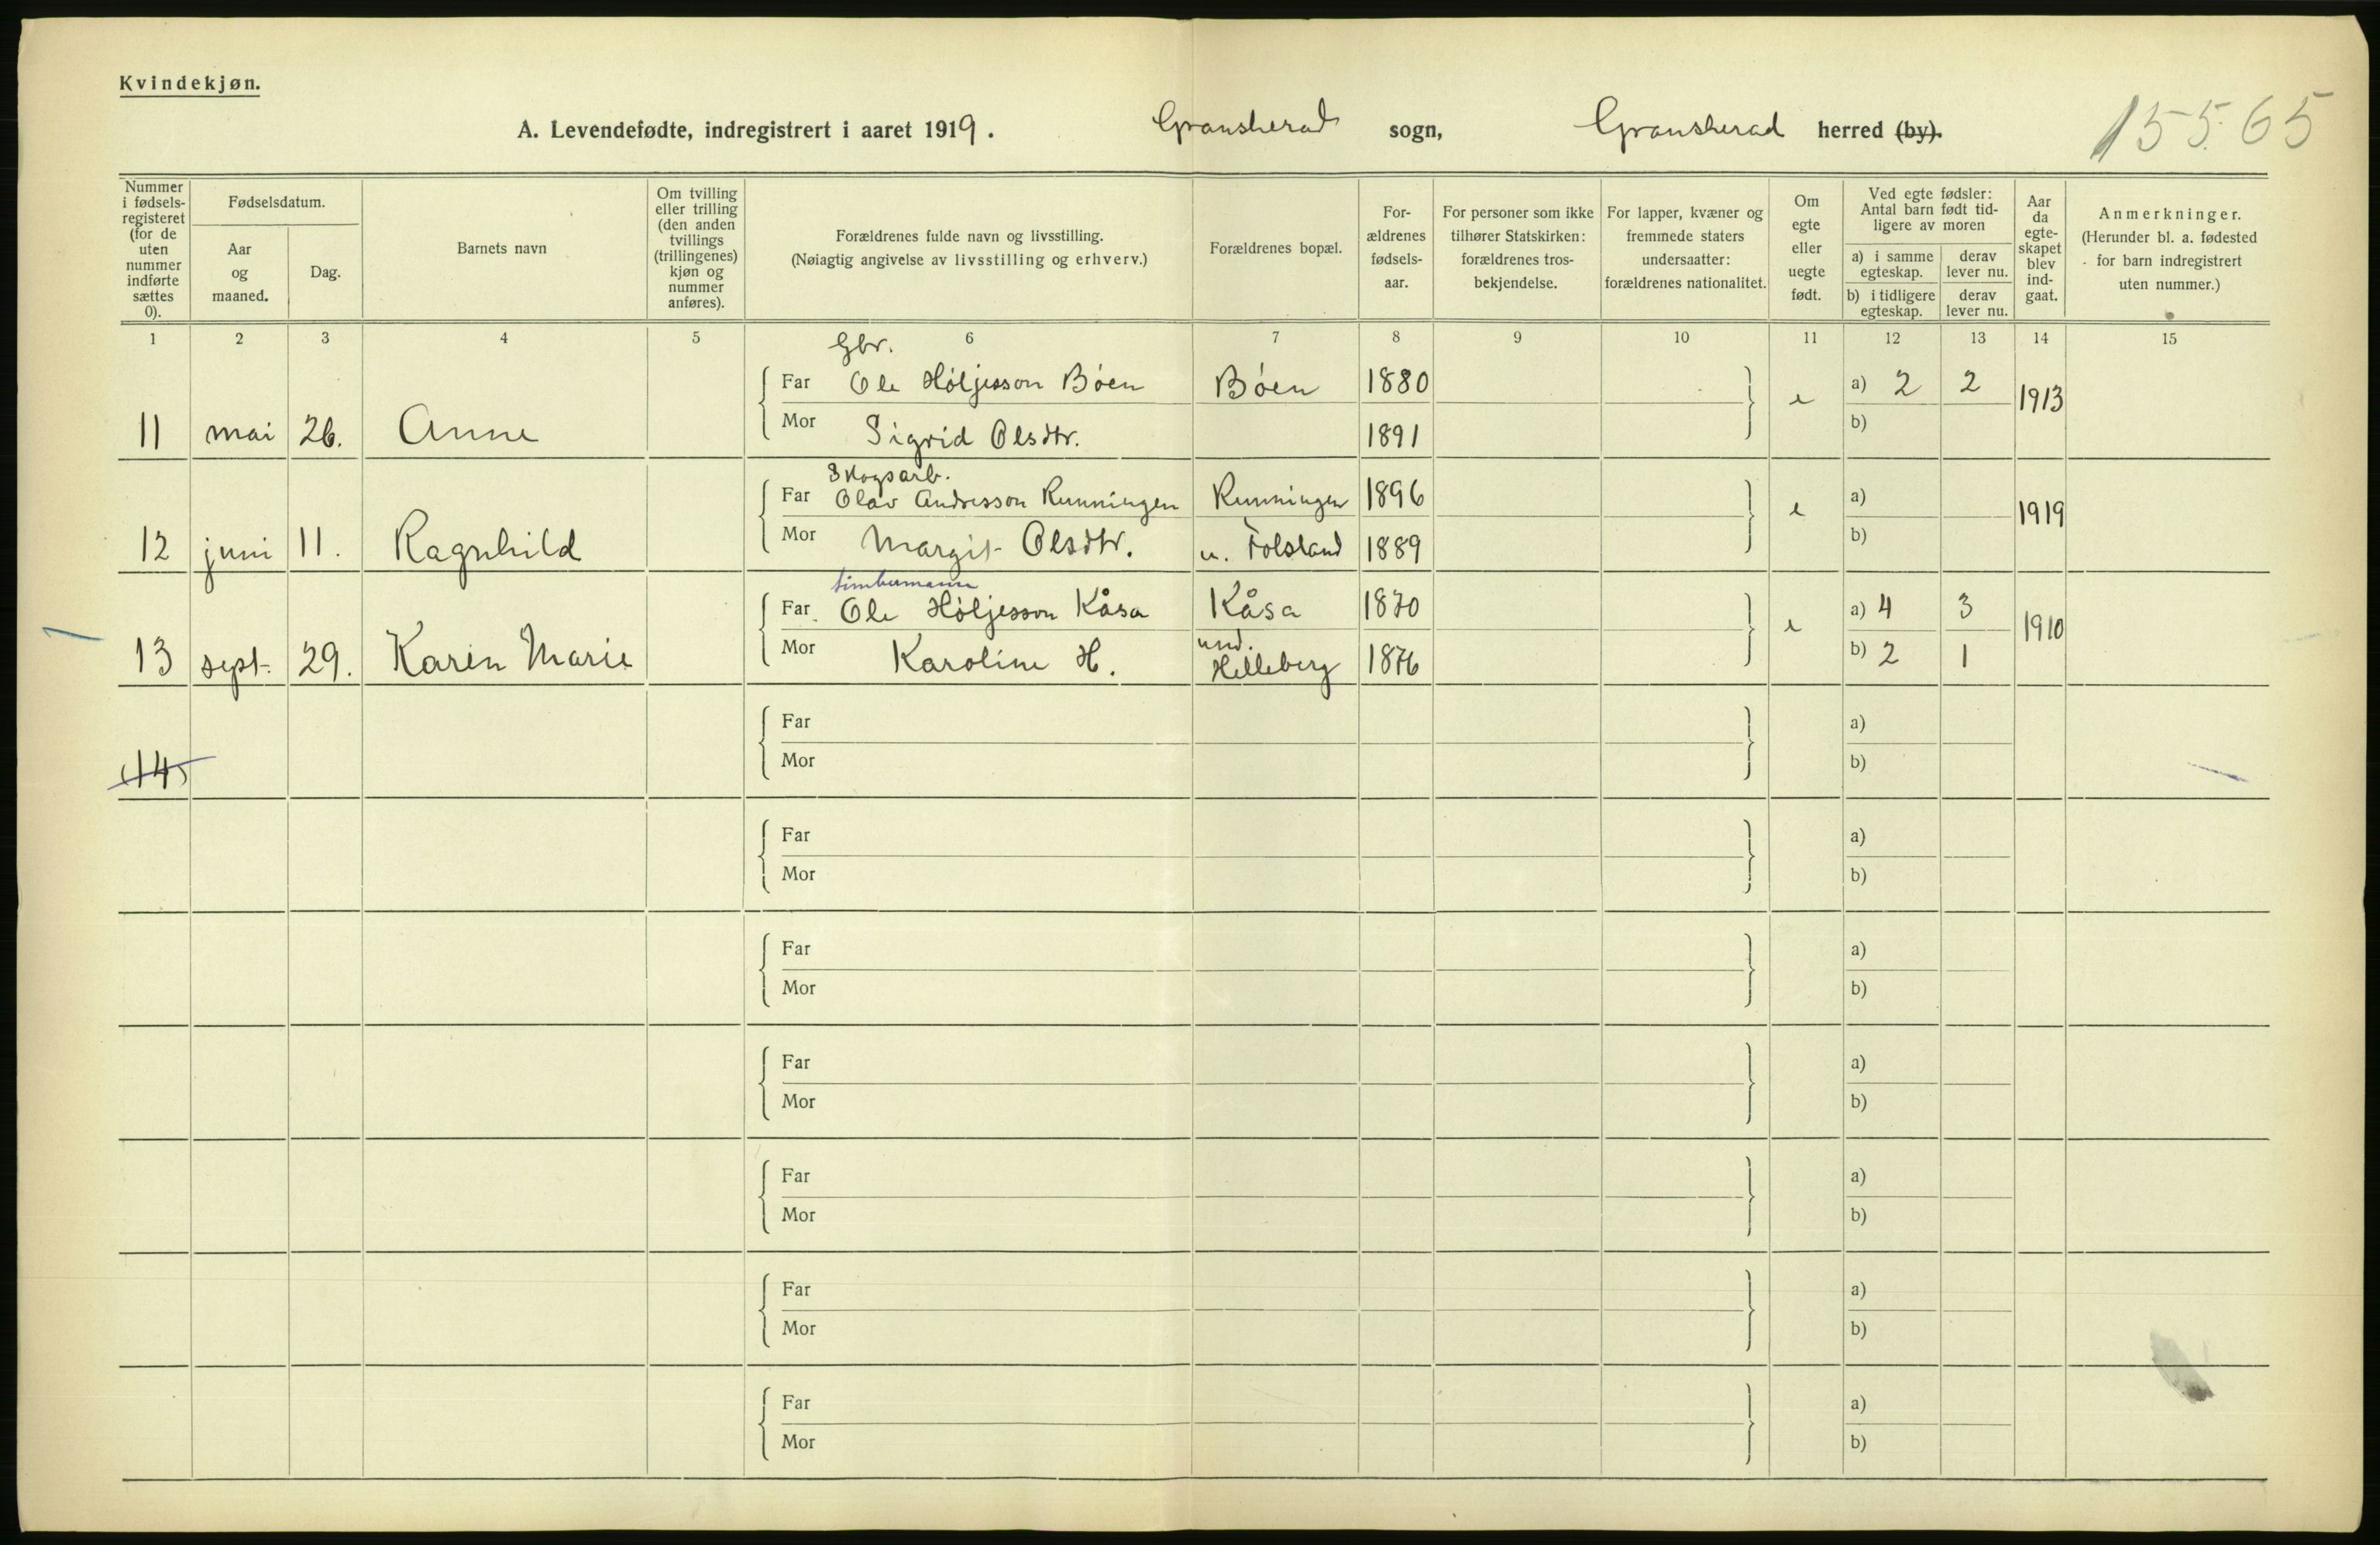 Kvindekjøn.
A. Levendefødte, indregistrert i aaret 1919. Gransherad sogn, Gransherad herred (by).
15565
Nummer i fødsels-registeret (for de uten nummer indførte sættes 0).
Fødselsdatum.
Aar og maaned.
Dag.
Barnets navn
Om tvilling eller trilling (den anden tvillings (trillingenes) kjøn og nummer anføres).
Forældrenes fulde navn og livsstilling.
(Nøiagtig angivelse av livsstilling og erhverv.)
Forældrenes bopæl.
For-ældrenes fødsels-aar.
For personer som ikke tilhører Statskirken: forældrenes tros-bekjendelse.
For lapper, kvæner og fremmede staters undersaatter: forældrenes nationalitet.
Om egte eller uegte født.
Ved egte fødsler: Antal barn født tid-ligere av moren
a) i samme egteskap.
derav lever nu.
b) i tidligere egteskap.
derav lever nu.
Aar da egte-skapet blev ind-gaat.
Anmerkninger.
(Herunder bl. a. fødested for barn indregistrert uten nummer.)
1 2 3 4 5 6 7 8 9 10 11 12 13 14 15
Gbr.
Far Ole Høljesson Bøen Bøen 1880 a) 2 2
11 mai 26. Anne e 1913
Mor Sigrid Olsdtr. 1891 b)
Skogsarb.
Far Olav Andresson Runningen Runningen 1896 a)
12 juni 11. Ragnhild e 1919
Mor Margit Olsdtr. u. Folsland 1889 b)
timbermann
Far Ole Høljesson Kåsa Kåsa 1870 a) 4 3
13 sept. 29. Karen Marie e 1910
Mor Karoline H. und. Helleberg 1876 b) 2 1
Far a)
14
Mor b)
Far a)
Mor b)
Far a)
Mor b)
Far a)
Mor b)
Far a)
Mor b)
Far a)
Mor b)
Far a)
Mor b)